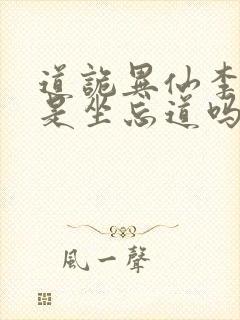 道詭異仙李
是坐忘道吗
風一聲